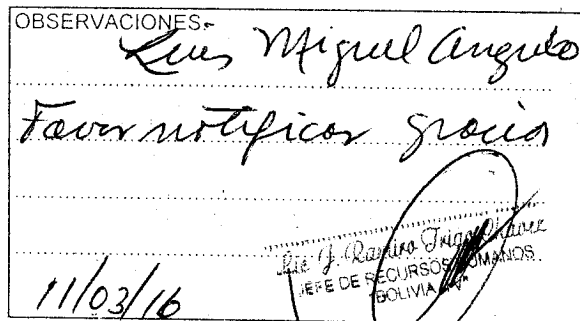 OBSERVACIONES.
Luis Miguel Angulo
Favor notificar gracias
Lic J. Ramiro Trigo Chávez
JEFE DE RECURSOS HUMANOS
BOLIVIA
11/03/16